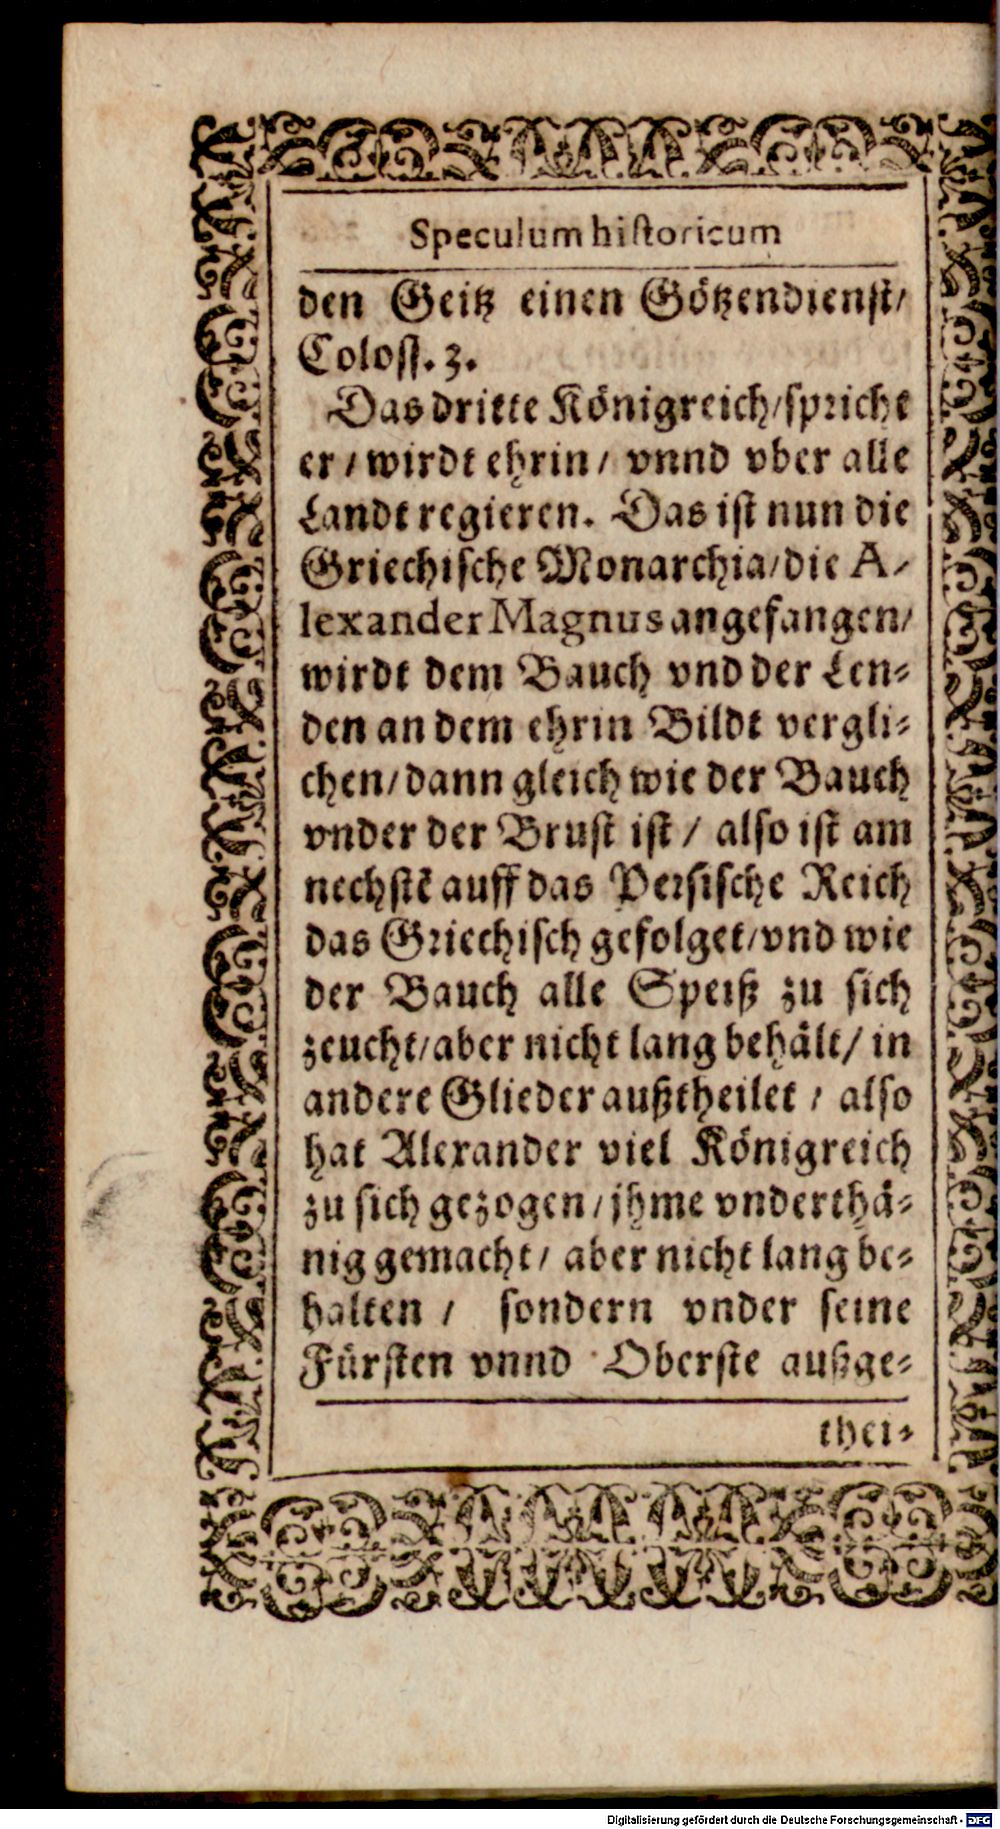 Speculum historicum
den Geitz einen Götzendienst/
Coloss. 3.
Das dritte Königreich/spricht
er/ wirdt ehrin/ vnnd vber alle
Landt regieren. Das ist nun die
Griechische Monarchia/die A-
lexander Magnus angefangen/
wirdt dem Bauch vnd der Len-
den an dem ehrin Bildt vergli-
chen/dann gleich wie der Bauch
vnder der Brust ist/ also ist am
nechstẽ auff das Persische Reich
das Griechisch gefolget/vnd wie
der Bauch alle Speiß zu sich
zeucht/aber nicht lang behält/ in
andere Glieder außtheilet/ also
hat Alexander viel Königreich
zu sich gezogen/jhme vnderthä-
nig gemacht/ aber nicht lang be-
halten/ sondern vnder seine
Fürsten vnnd Oberste außge-
thei-
Digitalisierung gefördert durch die Deutsche Forschungsgemeinschaft - DFG